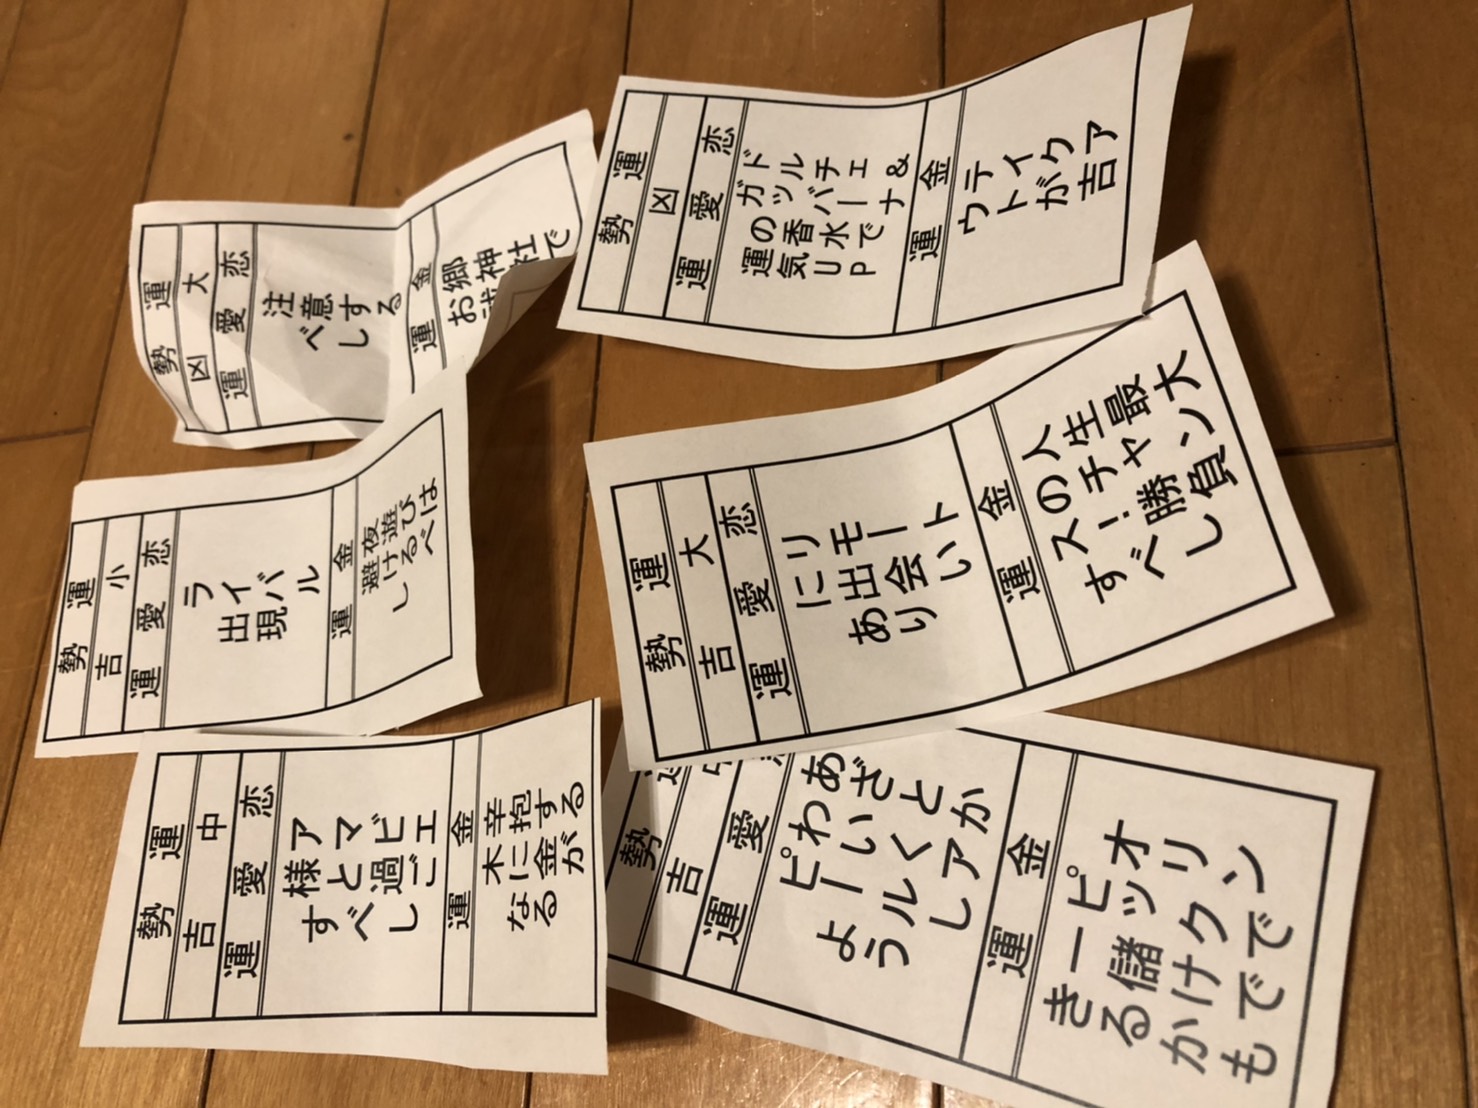 運勢
大凶
恋愛運
注意する
べし
金運
郷神社で
お
運勢
小吉
恋愛運
ライバル
出現
金運
夜遊びは
避けるべ
し
運勢
中吉
恋愛運
アマビエ
様と過ご
すべし
金運
辛抱する
木に金が
なる
運勢
凶
恋愛運
ドルチェ&
ガッバーナ
の香水で
運気UP
金運
テイクア
ウトが吉
運勢
大吉
恋愛運
リモート
に出会い
あり
金運
人生最大
のチャン
ス！勝負
すべし
運勢
吉
恋愛運
あざとか
わいくア
ピールし
よう
金運
オリン
ピックで
一儲けで
きるかも